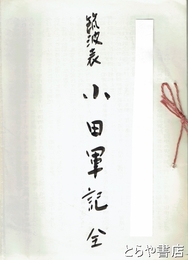 筑波表
小田軍記 全
とらや書店